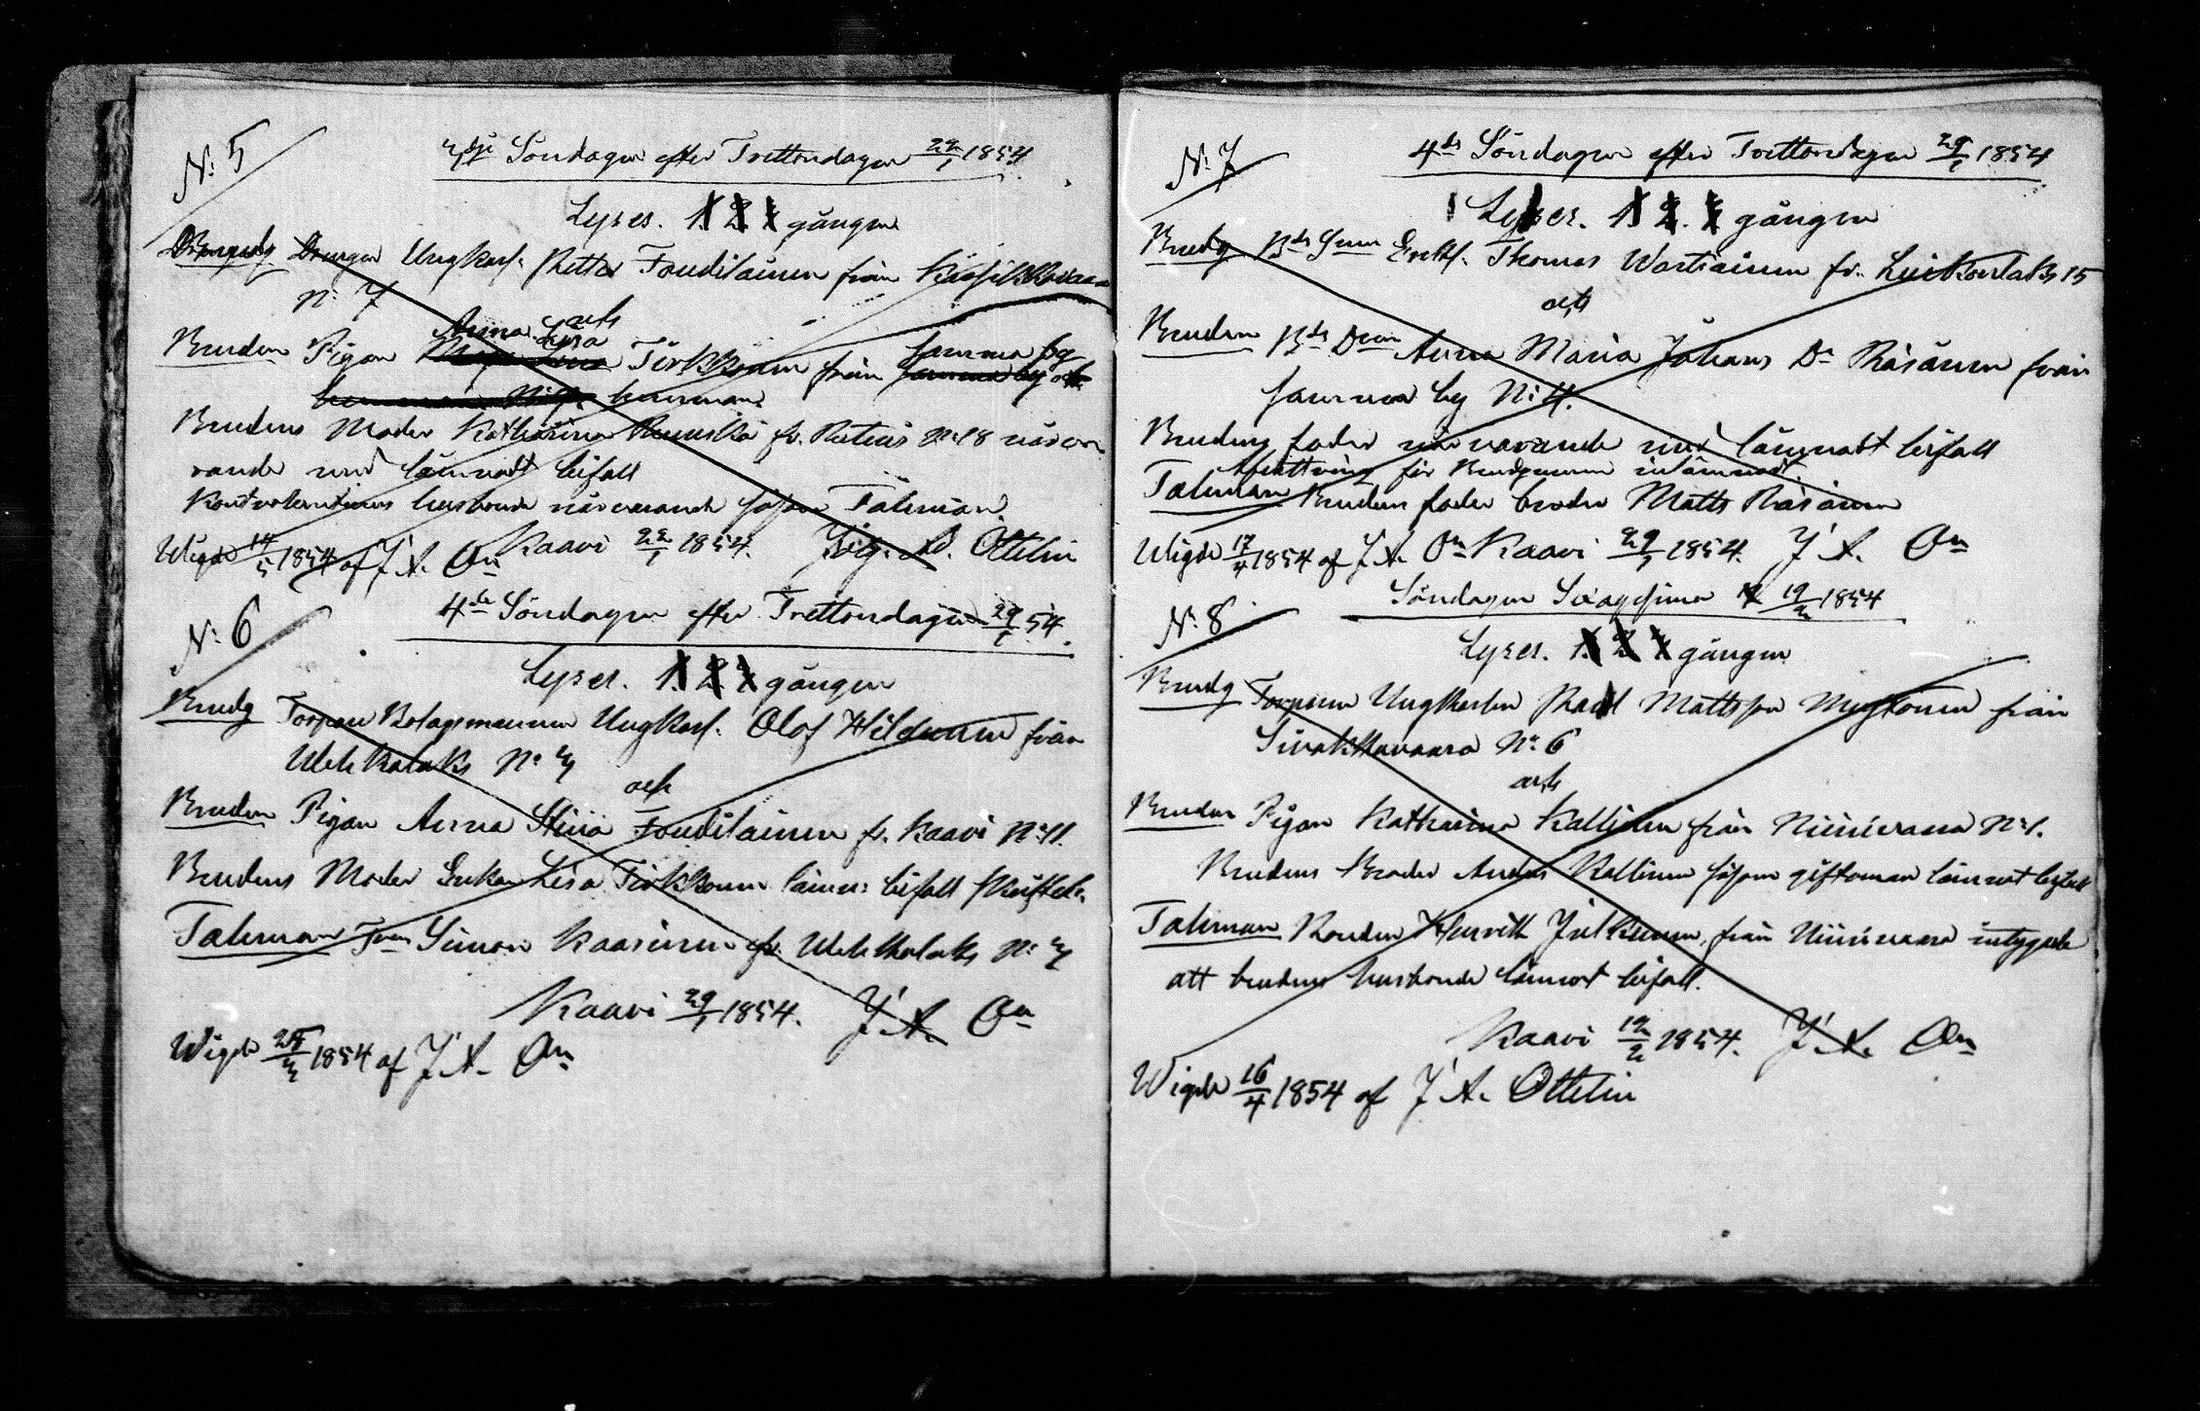 N: 5
3dje Söndagen efter Trettondagen 22/1 1854.
Lyses. 1. 2. 3 gången
Brudg Drengen Ungkarl. Petter Toudilainen från
N: 7
och
Bruden Pigan Anna Lisa Tirkkonen från samma by
Brudens Moder Katharina fr. N:18 närva
rande med lämnadt bifall
husbonde närvarande såsom Talman
Kaavi 22/1 1854. J. A. Ottelin
Wigde 14/5 1854 af J. A. On
N: 6
4de Söndagen efter Trettondagen 29/1 54.
Lyses. 1. 2. 3 gången
Brudg Torpare Bolagsmannen Ungkarl. Olof Hildunen från
N: 3
och
Bruden Pigan Anna Stina Toudilainen fr. Kaavi N: 11.
Brudens Moder Enkan Lisa Tirkkonen bifall
Talman Simon Kaasinen fr. N: 3
Kaavi 29/1 1854. J. A. On
Wigde 25/3 1854 af J. A. On
N: 7
4de Söndagen efter Trettondagen 29/1 1854
Lyses. 1. 2. 3 gången
Brudg Bde Son Enkl. Thomas Wartiainen fr. Luikonlaks 15
och
Bruden Bde Dren Anna Maria Johans Dr Räsänen från
samma by N: 4.
Brudens fader närvarande med lämnadt bifall
för Brudgummen inlämnadt.
Talman Brudens fader broder Matts Räsänen
Wigde 17/4 1854 af J. A. On Kaavi 29/1 1854. J. A. On
N: 8
Söndagen Sexagesima 19/2 1854
Lyses. 1. 2. 3 gången
Brudg Torparen Ungkarlen Pål Mattsson från
Sivakkavaara N: 6
och
Bruden Pigan Katharina Kallinen från Niinivaara N: 1.
Brudens Broder Anders Kallinen såsom giftoman lämnat bifall
Talman Bonden Henrik Julkunen från Niinivaara intygade
att brudens husbonde lämnat bifall.
Kaavi 19/2 1854. J. A. On
Wigde 16/4 1854 af J. A. Ottelin